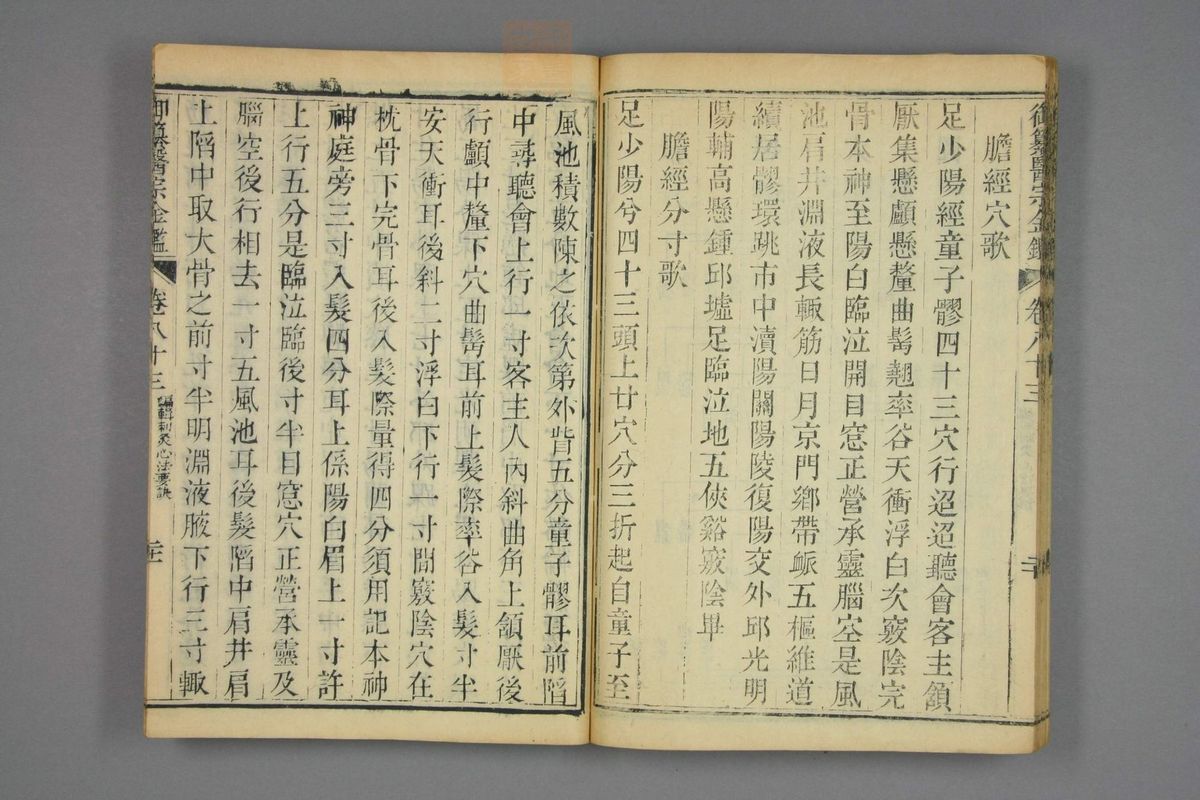 御纂醫宗金鑑 卷八十三 二十
膽經穴歌
足少陽經童子髎四十三穴行迢迢聽會客主頷
厭集懸顱懸釐曲鬢翹率谷天衝浮白次竅陰完
骨本神至陽白臨泣開目窓正營承靈腦空是風
池肩井淵液長輒筋日月京門鄉帶衇五樞維道
續居髎環跳市中瀆陽關陽陵復陽交外邱光明
陽輔高懸鍾邱墟足臨泣地五俠谿竅陰畢
膽經分寸歌
足少陽兮四十三頭上廿穴分三折起自童子至
風池積數陳之依次第外眥五分童子髎耳前陷
中尋聽會上行一寸客主人內斜曲角上頷厭後
行顱中釐下穴曲鬢耳前上髮際率谷入髮寸半
安天衝耳後斜二寸浮白下行一寸間竅陰穴在
枕骨下完骨耳後入髮際量得四分須用記本神
神庭旁三寸入髮四分耳上係陽白眉上一寸許
上行五分是臨泣臨後寸半目窓穴正營承靈及
腦空後行相去一寸五風池耳後髮陷中肩井肩
上陷中取大骨之前寸半明淵液腋下行三寸輒
御纂醫宗金鑑 卷八十三 編輯刺灸心法要訣 二十一